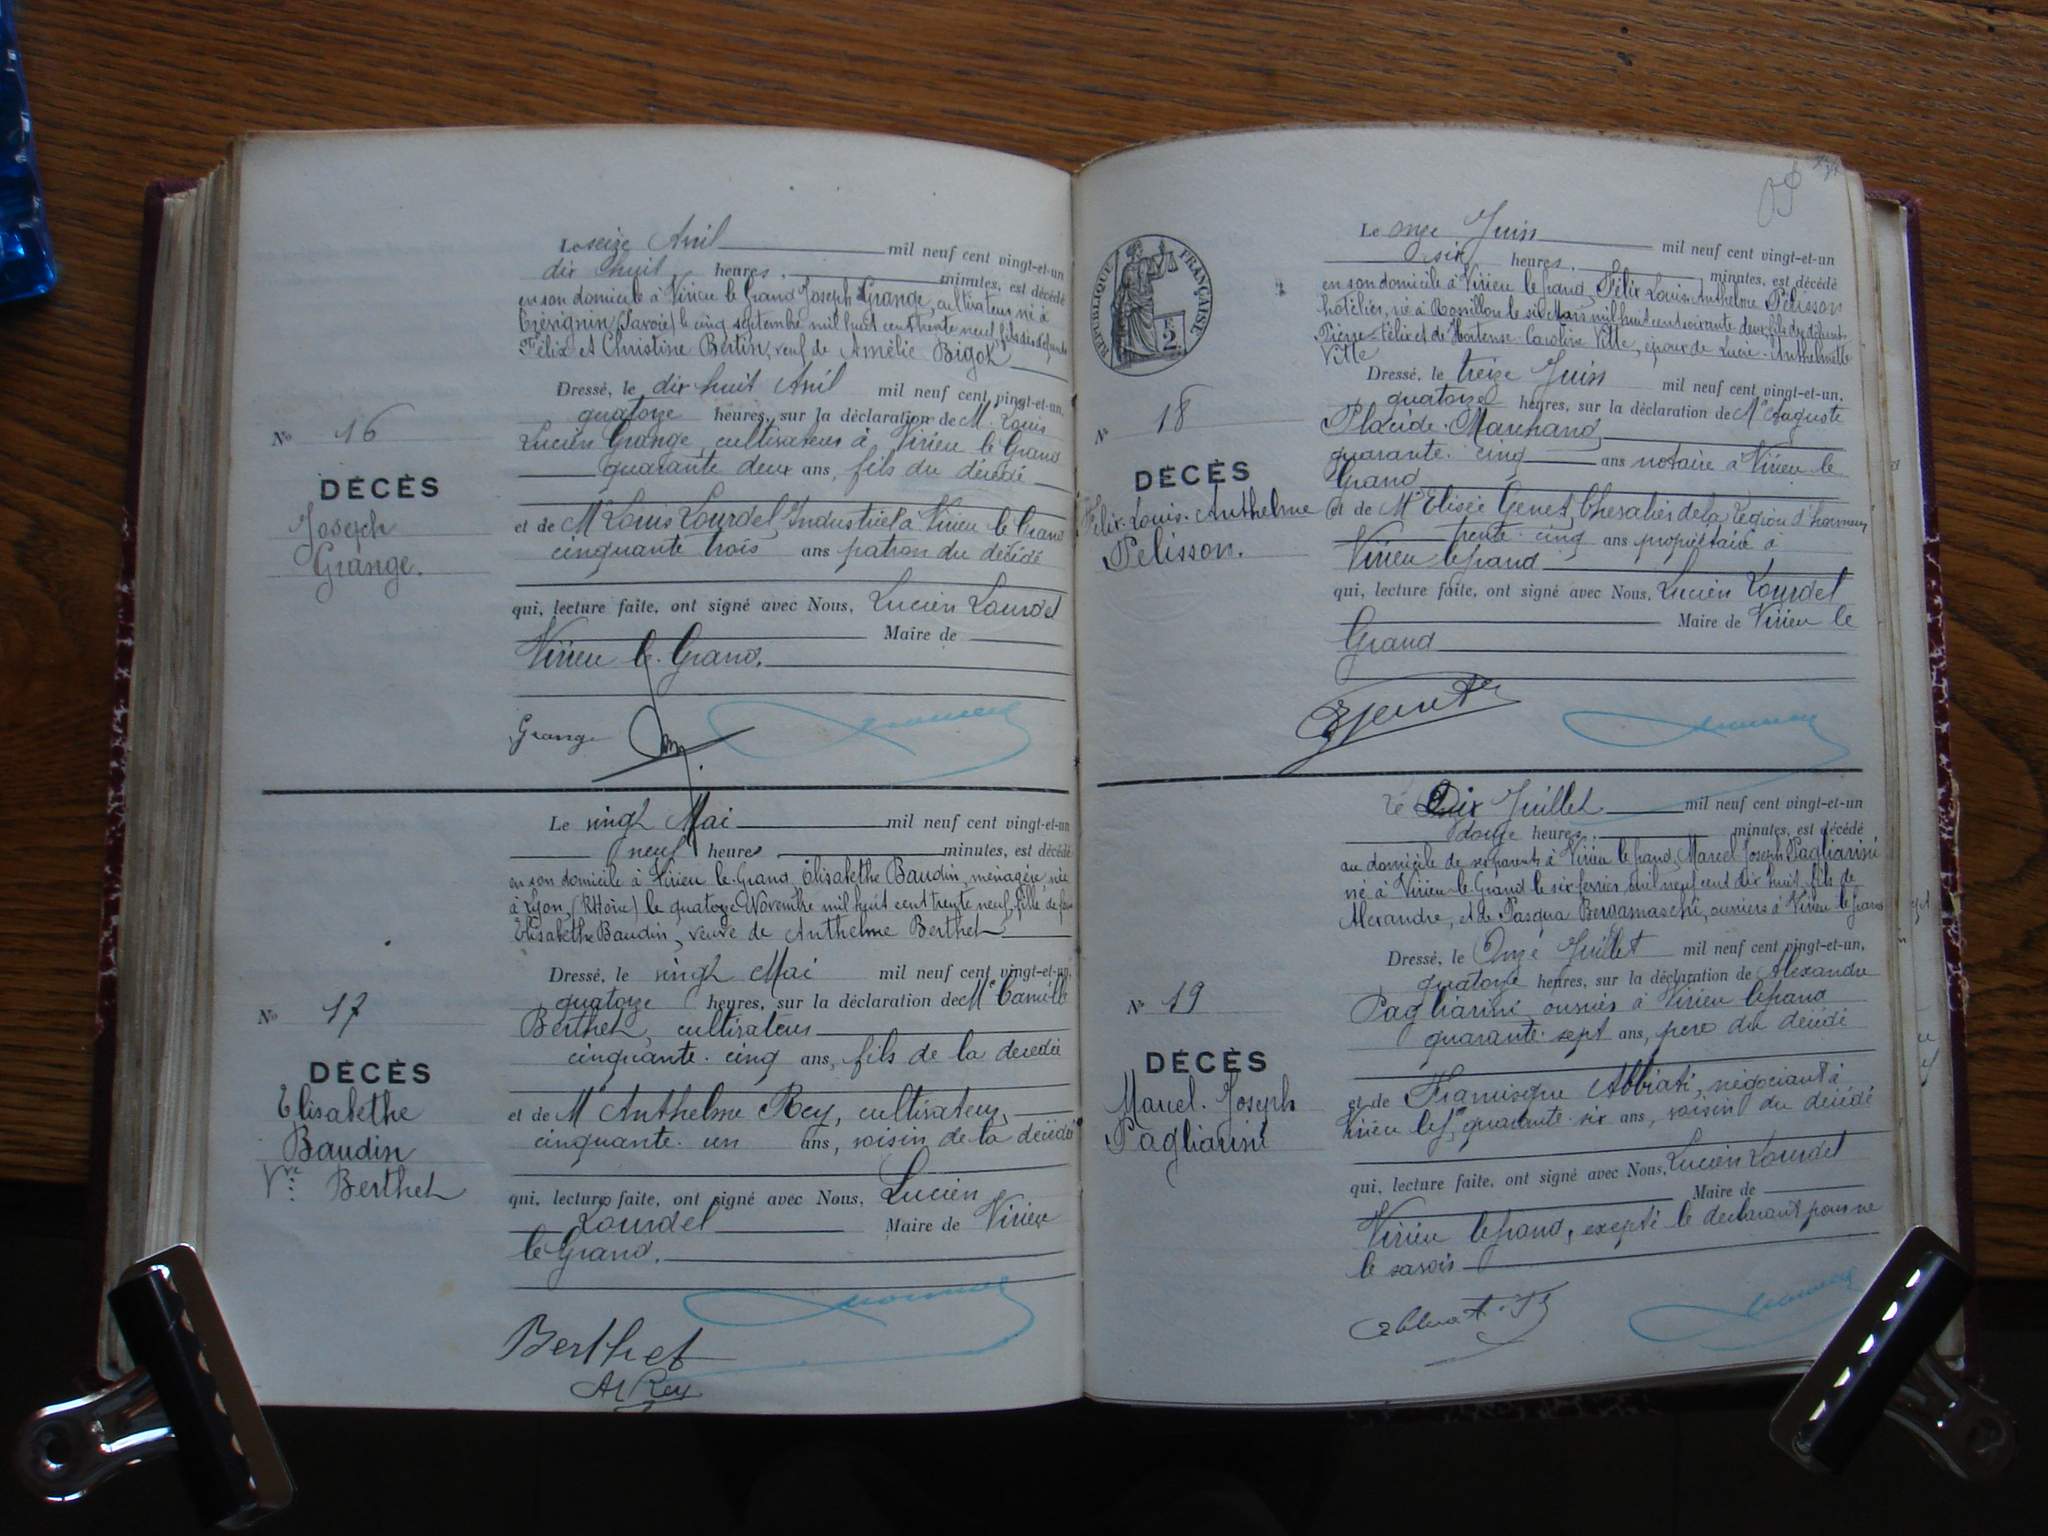 Le seize Avril mil neuf cent vingt-et-un
dix huit heures, minutes, est décédé
en son domicile à Virieu le Grand Joseph Grange, cultivateur, né à
(Savoie) le cinq septembre mil huit cent trente neuf, fils des défunts
Félix et Christine Bertin, veuf de Amélie Bigot
Dressé, le dix huit Avril mil neuf cent vingt-et-un,
quatorze heures, sur la déclaration de M. Louis
Lucien Grange, cultivateur à Virieu le Grand
quarante deux ans, fils du décédé
et de M Louis Lourdel, Industriel à Virieu le Grand
cinquante trois ans patron du décédé
qui, lecture faite, ont signé avec Nous, Lucien Lourdel
Maire de
Virieu le Grand.
No 16
DÉCÈS
Joseph
Grange.
Grange
Le vingt Mai mil neuf cent vingt-et-un
neuf heures minutes, est décédé
en son domicile à Virieu le Grand, Elisabethe Baudin, ménagère, née
à Lyon, (Rhône) le quatorze Novembre mil huit cent trente neuf, fille de
Elisabethe Baudin, veuve de Anthelme Berthet
Dressé, le vingt Mai mil neuf cent vingt-et-un,
quatorze heures, sur la déclaration de Mr Camille
Berthet, cultivateur
cinquante-cinq ans, fils de la décédée
et de M Anthelme Rey, cultivateur,
cinquante-un ans, voisin de la décédée
qui, lecture faite, ont signé avec Nous, Lucien
Lourdel Maire de Virieu
le Grand.
No 17
DÉCÈS
Elisabethe
Baudin
Vve Berthet
Berthet
A Rey
RÉPUBLIQUE FRANÇAISE
2
Le onze Juin mil neuf cent vingt-et-un
six heures, minutes, est décédé
en son domicile à Virieu le grand, Félix Louis Anthelme Pélisson
hôtelier, né à Rossillon le six Mars mil huit cent soixante deux, fils des défunts
Pierre-Félix et de Hortense-Caroline Vitte, époux de Lucie-Anthelmette
Vitte
Dressé, le treize Juin mil neuf cent vingt-et-un,
quatorze heures, sur la déclaration de Mr Auguste
Placide Marchand
quarante-cinq ans notaire à Virieu le
Grand
et de Mr Elisée Genet, Chevalier de la Légion d'honneur,
trente-cinq ans propriétaire à
Virieu le grand
qui, lecture faite, ont signé avec Nous, Lucien Lourdel
Maire de Virieu le
Grand
No 18
DÉCÈS
Félix-Louis-Anthelme
Pélisson.
EGenet
Le Dix Juillet mil neuf cent vingt-et-un
douze heures, minutes, est décédé
au domicile de ses parents à Virieu le grand, Marcel Joseph Pagliarini
né à Virieu-le-Grand le six février mil neuf cent dix huit, fils de
Alexandre, et de Pasqua Bergamaschi, ouvriers à Virieu le grand
Dressé, le Onze Juillet mil neuf cent vingt-et-un,
quatorze heures, sur la déclaration de Alexandre
Pagliarini ouvrier à Virieu le grand
quarante-sept ans, père du décédé
et de Francisque Abbiati, négociant à
Virieu le gd, quarante-six ans, voisin du décédé
qui, lecture faite, ont signé avec Nous, Lucien Lourdel
Maire de
Virieu le grand, excepté le déclarant pour ne
le savoir
No 19
DÉCÈS
Marcel-Joseph
Pagliarini